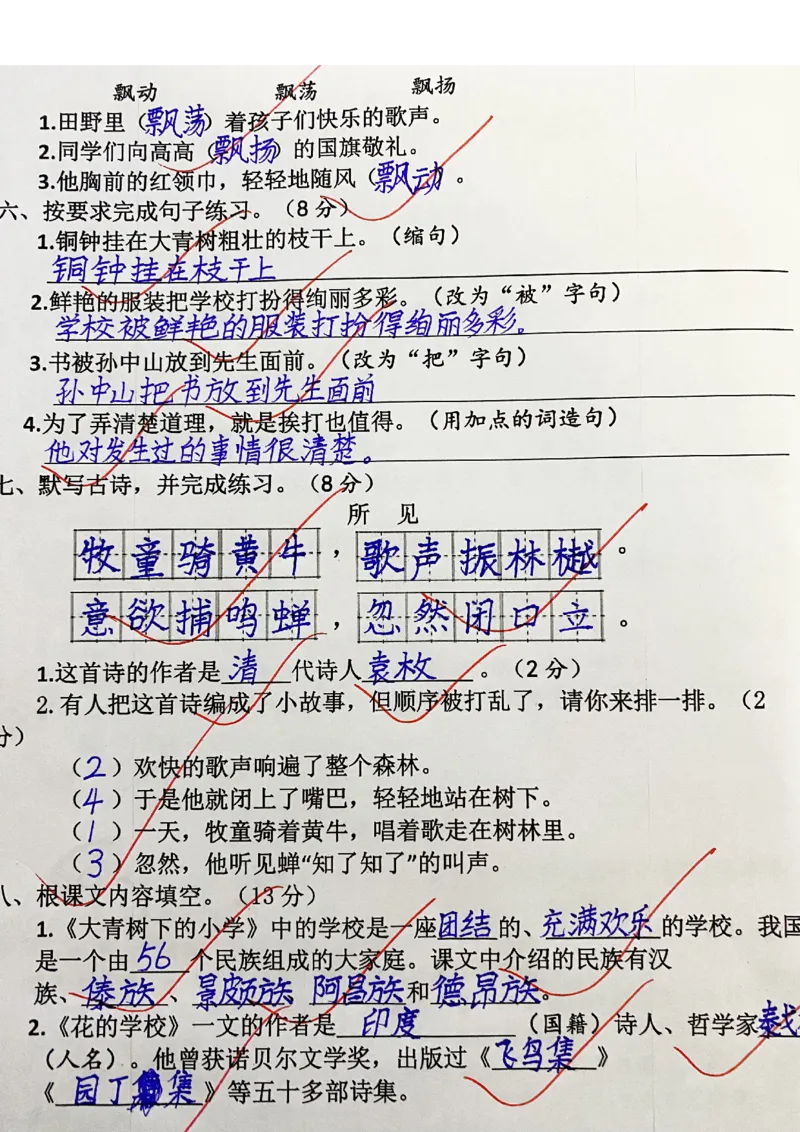 飘动 飘荡 飘扬
1.田野里（飘荡）着孩子们快乐的歌声。
2.同学们向高高（飘扬）的国旗敬礼。
3.他胸前的红领巾，轻轻地随风（飘动）。
六、按要求完成句子练习。（8分）
1.铜钟挂在大青树粗壮的枝干上。（缩句）
铜钟挂在枝干上
2.鲜艳的服装把学校打扮得绚丽多彩。（改为“被”字句）
学校被鲜艳的服装打扮得绚丽多彩。
3.书被孙中山放到先生面前。（改为“把”字句）
孙中山把书放到先生面前
4.为了弄清楚道理，就是挨打也值得。（用加点的词造句）
他对发生过的事情很清楚。
七、默写古诗，并完成练习。（8分）
所 见
牧童骑黄牛，歌声振林樾。
意欲捕鸣蝉，忽然闭口立。
1.这首诗的作者是清代诗人袁枚。（2分）
2.有人把这首诗编成了小故事，但顺序被打乱了，请你来排一排。（2
分）
（2）欢快的歌声响遍了整个森林。
（4）于是他就闭上了嘴巴，轻轻地站在树下。
（1）一天，牧童骑着黄牛，唱着歌走在树林里。
（3）忽然，他听见蝉“知了知了”的叫声。
八、根课文内容填空。（13分）
1.《大青树下的小学》中的学校是一座团结的、充满欢乐的学校。我国
是一个由56个民族组成的大家庭。课文中介绍的民族有汉
族、傣族、景颇族 阿昌族和德昂族。
2.《花的学校》一文的作者是印度（国籍）诗人、哲学家泰戈
（人名）。他曾获诺贝尔文学奖，出版过《飞鸟集》
《园丁集》等五十多部诗集。